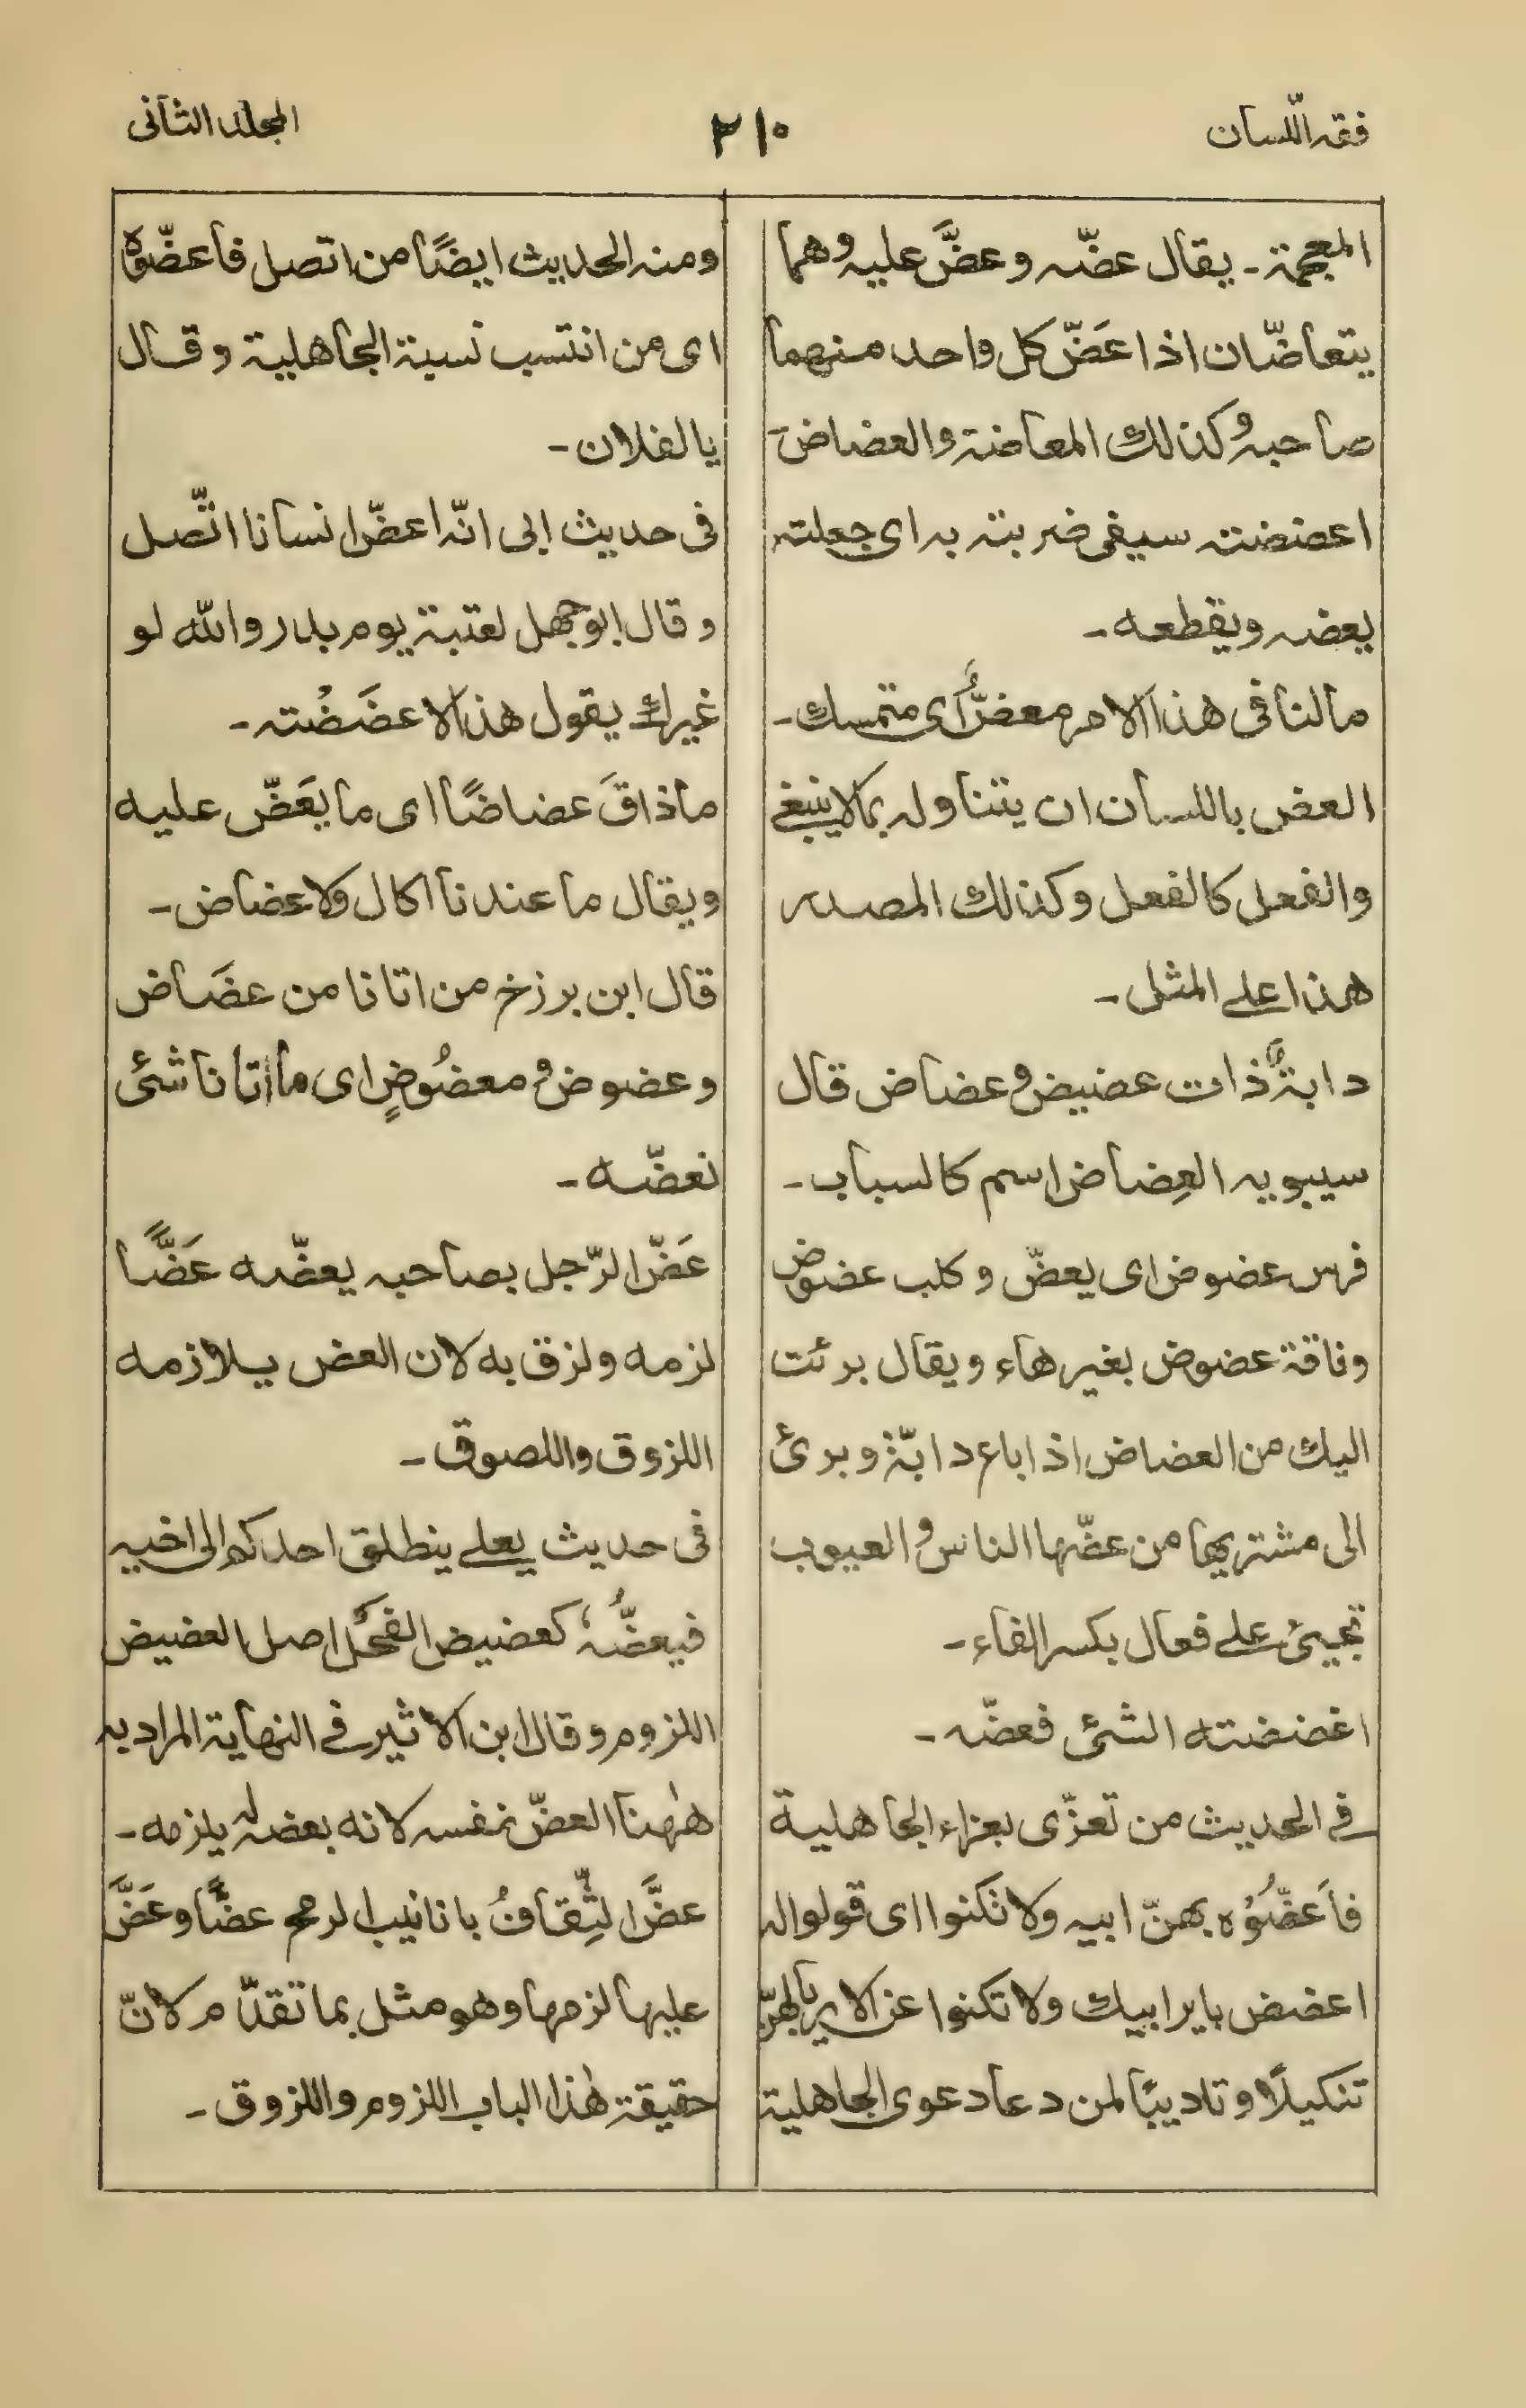 فقه اللّسان
٣١٠
المجلد الثانی
المعجمة ـ يقال عضّه و عضَّ عليه وهما
يتعاضّان اذا عَضّ كل واحد منهما
صاحبه وكذلك المعاضة والعضاض ـ
اعضضته سيفى ضربته به اى جعلته
يعضه ويقطعه ـ
مالنا فى هذا الامر معضٌّ اى متمسك ـ
العض باللسان ان يتناوله بما لا ينبغے
والفعل كالفعل وكذلك المصدر
هذا علے المثل ـ
دابةٌ ذات عضيض وعضاض قال
سيبويه العِضاض اسم كالسباب ـ
فرس عضوض اى يعضّ وكلب عضوض
وناقة عضوض بغير هاء ويقال برئت
اليك من العضاض اذا باع دابّة وبرئ
الى مشتريها من عضّها الناس والعيوب
تجيئ علے فعال بكسر الفاء ـ
اغضضته الشئ فعضّه ـ
فے الحديث من تعزّى بعزاء الجاهلية
فاَعضّوُه بهنّ ابيه ولا تكنوا اى قولواله
اعضض باير ابيك ولا تكنوا عن الاير بالهنّ
تنكيلاً وتاديبًا لمن دعا دعوى الجاهلية
ومنه الحديث ايضًا من اتصل فاعضّوه
اى من انتسب نسبة الجاهلية وقال
يا لفلان ـ
فى حديث ابى انّه اعضّ انسانا اتّصل
وقال ابوجهل لعتبة يوم بدر والله لو
غيرك يقول هذا لاعضَضُته ـ
ماذاقَ عضاضًا اى ما يَعَضّ عليه
ويقال ما عندنا اكال ولا عضاض ـ
قال ابن برزخ من اتانا من عضَاض
وعضوض ومعضُوضٍ اى ما اتانا شئى
نعضّه ـ
عَضّ الرّجل بصاحبه يعضّه عَضًّا
لزمه ولزق به لان العض يلازمه
اللزوق واللصوق ـ
فى حديث يعلے ينطلق احدكم الى اخيه
فيعضُّهٗ كعضيض الفحل اصل العضيض
اللزوم وقال ابن الاثير فے النهاية المراد به
هٰهنا العضّ نفسه لانه بعضه له يلزمه ـ
عضَّ الثِّقافُ بانانيب الرمح عضًّا وعَضَّ
عليها لزمها وهو مثل بما تقدّم لانّ
حقيقة هٰذا الباب اللزوم واللزوق ـ